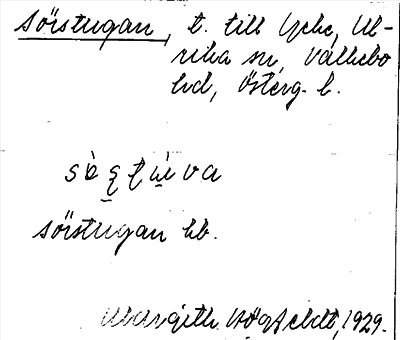 Sörstugan, t. till Yche, Ul-
rika sn, Valkebo
hd, Österg. l.
sörstugan hb.
Margith Högfeldt, 1929.